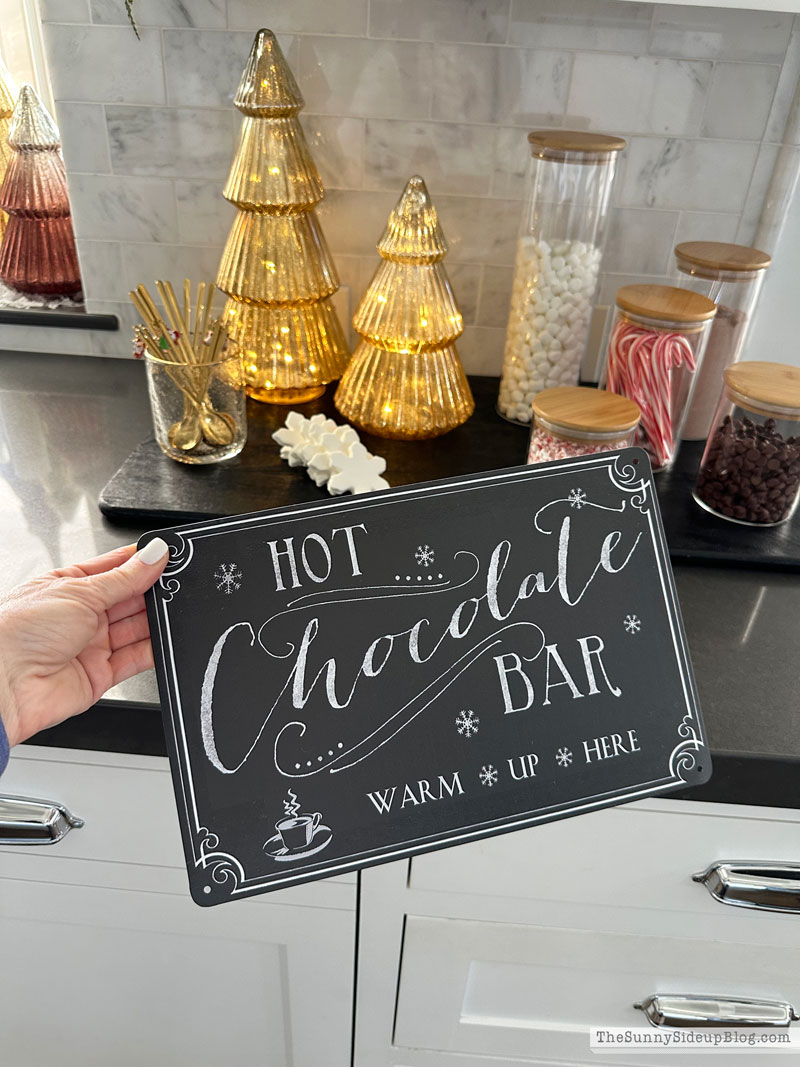 HOT
Chocolate
BAR
WARM UP HERE
TheSunnySideupBlog.com